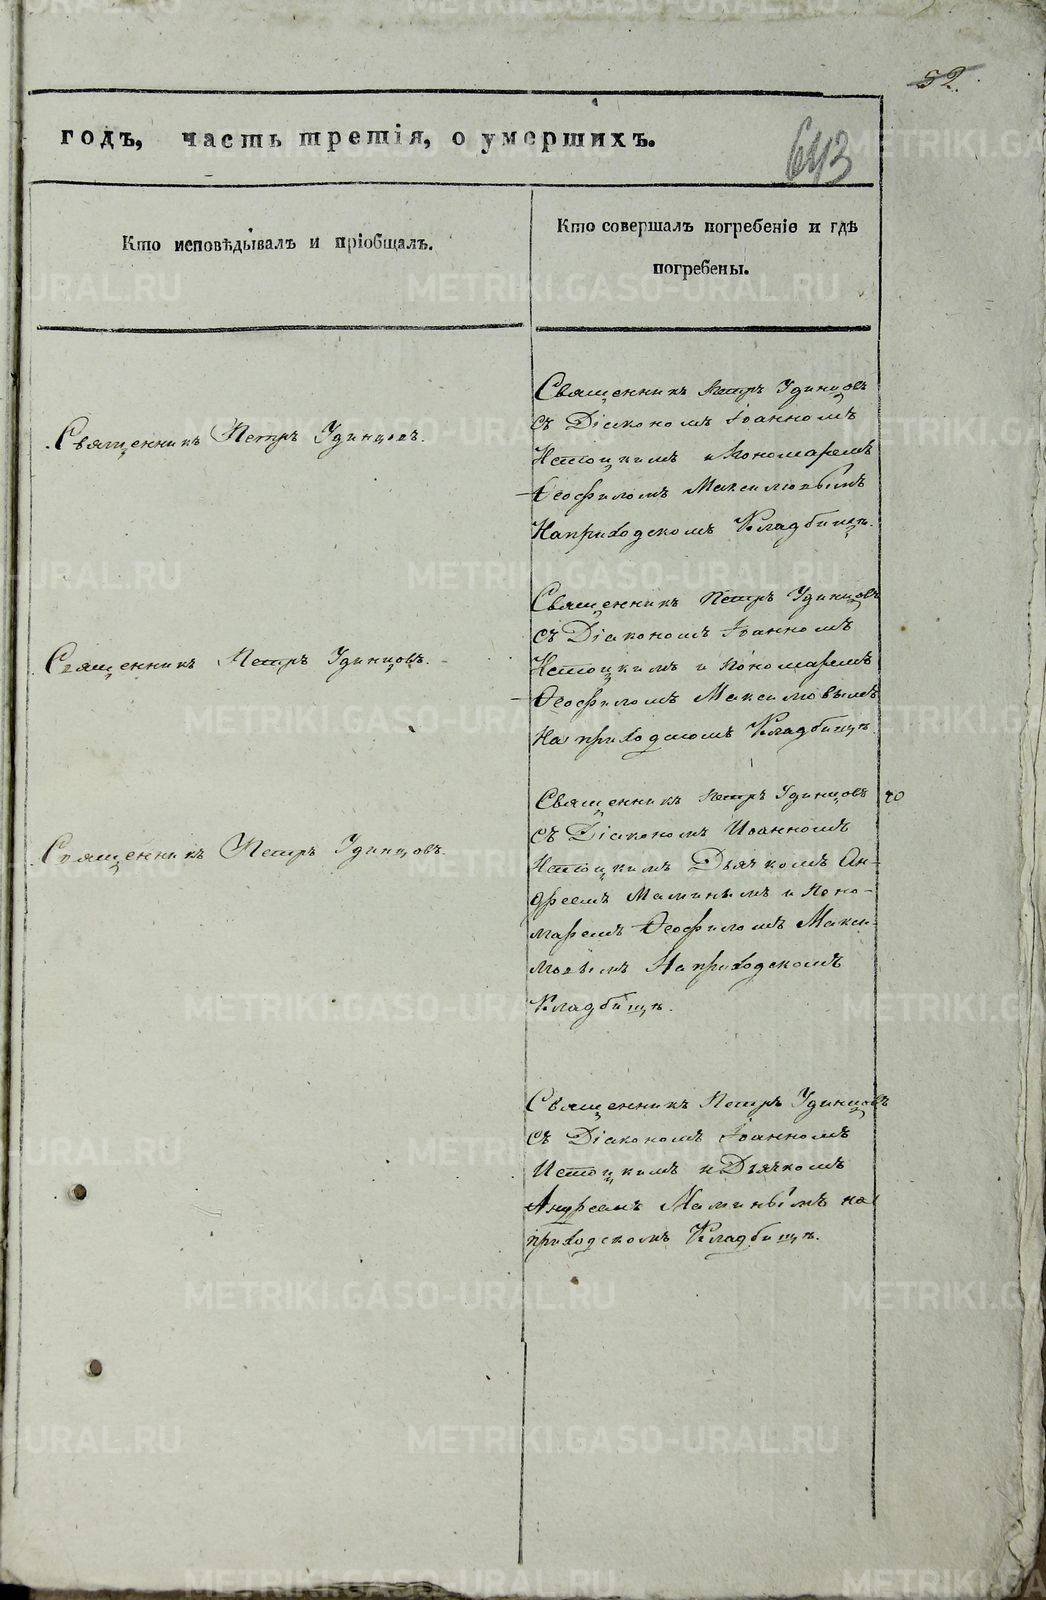 52.
годъ, часть третія, о умершихъ.
643
Кто исповѣдывалъ и пріобщалъ.
Кто совершалъ погребеніе и гдѣ
погребены.
Священникъ Петръ Удинцовъ.
Священникъ Петръ Удинцовъ
съ Діакономъ Іоанномъ
Истоцкимъ и Пономаремъ
Ѳеофиломъ Максимовымъ
На приходскомъ Кладбищѣ.
Священникъ Петръ Удинцовъ.
Священникъ Петръ Удинцовъ
съ Діакономъ Іоанномъ
Истоцкимъ и Пономаремъ
Ѳеофиломъ Максимовымъ
На приходскомъ Кладбищѣ.
Священникъ Петръ Удинцовъ.
Священникъ Петръ Удинцовъ
съ Діакономъ Иоанномъ
Истоцкимъ Дьячкомъ Ан-
дреемъ Маминымъ и Поно-
маремъ Ѳеофиломъ Макси-
мовымъ На приходскомъ
Кладбищѣ.
Священникъ Петръ Удинцовъ
съ Діакономъ Іоанномъ
Истоцкимъ и Дьячкомъ
Андреемъ Маминымъ на
приходскомъ Кладбищѣ.
METRIKI.GASO-URAL.RU